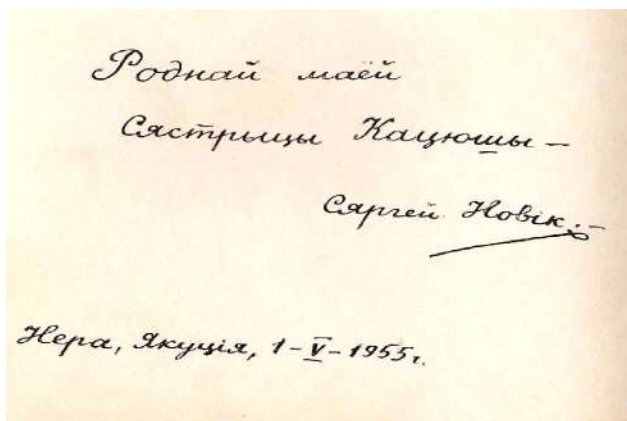 Роднай маёй
Сястрыцы Кацюшы –
Сяргей Новік.–
Нера, Якуція, 1–V–1955г.